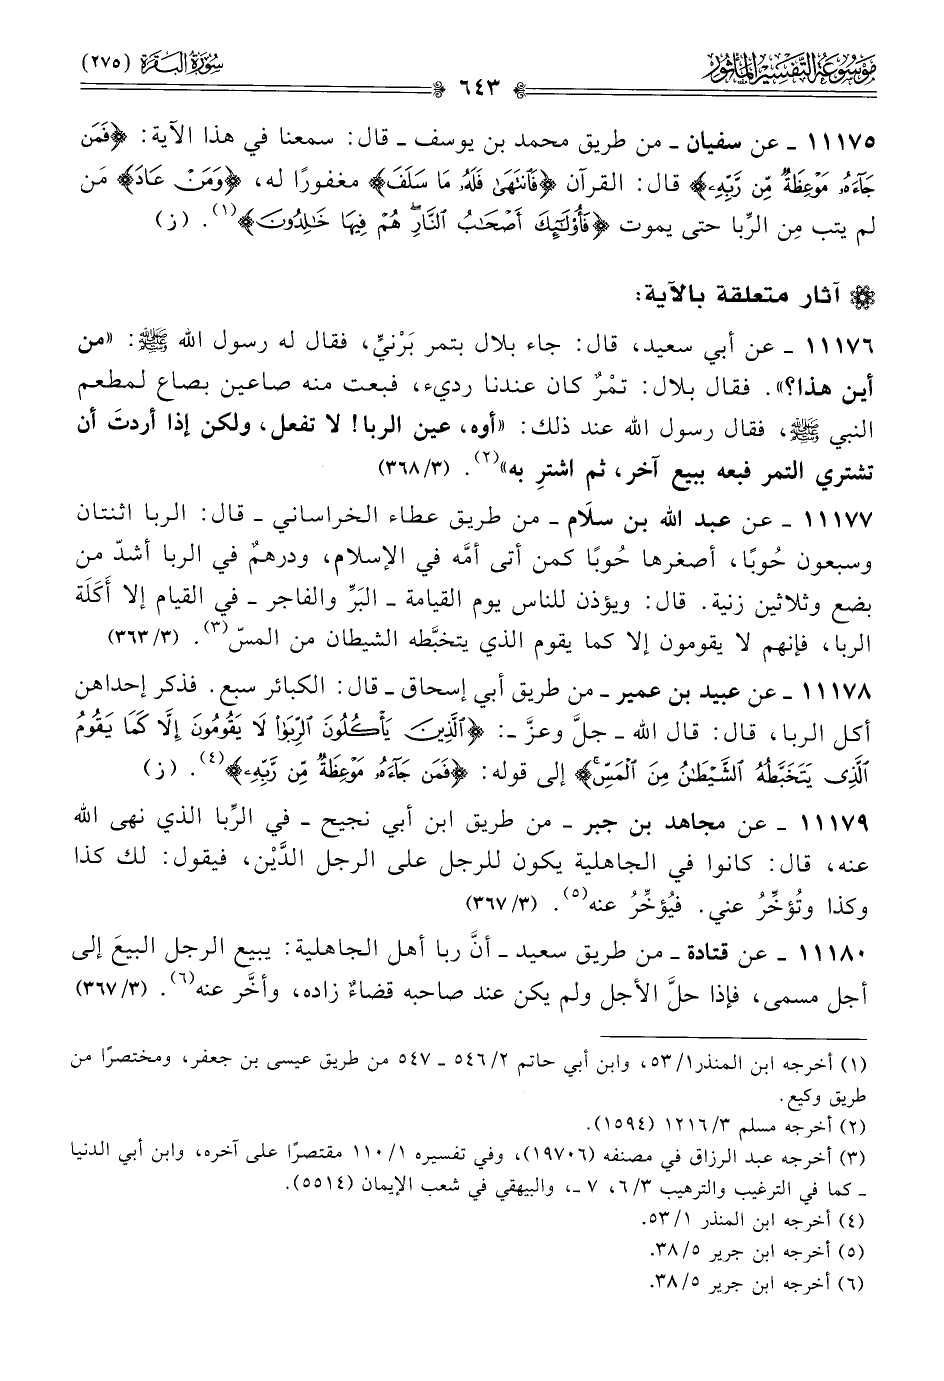 موسوعة التفسير المأثور
٦٤٣
سورة البقرة (٢٧٥)
١١١٧٥ ـ عن سفيان ـ من طريق محمد بن يوسف ـ قال: سمعنا في هذا الآية: ﴿فَمَن
جَآءَهُۥ مَوْعِظَةٌ مِّن رَّبِّهِۦ﴾ قال: القرآن ﴿فَٱنتَهَىٰ فَلَهُۥ مَا سَلَفَ﴾ مغفورًا له، ﴿وَمَنْ عَادَ﴾ مَن
لم يتب مِن الرِّبا حتى يموت ﴿فَأُو۟لَـٰٓئِكَ أَصْحَـٰبُ ٱلنَّارِ ۖ هُمْ فِيهَا خَـٰلِدُونَ﴾(١). (ز)
آثار متعلقة بالآية:
١١١٧٦ ـ عن أبي سعيد، قال: جاء بلال بتمر بَرْنيٍّ، فقال له رسول الله ﷺ: «من
أين هذا؟». فقال بلال: تمْرٌ كان عندنا رديء، فبعت منه صاعين بصاع لمطعم
النبي ﷺ، فقال رسول الله عند ذلك: «أوه، عين الربا! لا تفعل، ولكن إذا أردتَ أن
تشتري التمر فبعه ببيع آخر، ثم اشترِ به»(٢). (٣/ ٣٦٨)
١١١٧٧ ـ عن عبد الله بن سلَام ـ من طريق عطاء الخراساني ـ قال: الربا اثنتان
وسبعون حُوبًا، أصغرها حُوبًا كمن أتى أمَّه في الإسلام، ودرهمٌ في الربا أشدّ من
بضع وثلاثين زنية. قال: ويؤذن للناس يوم القيامة ـ البَرِّ والفاجر ـ في القيام إلا أَكَلَة
الربا، فإنهم لا يقومون إلا كما يقوم الذي يتخبَّطه الشيطان من المسّ(٣). (٣/ ٣٦٣)
١١١٧٨ ـ عن عبيد بن عمير ـ من طريق أبي إسحاق ـ قال: الكبائر سبع. فذكر إحداهن
أكل الربا، قال: قال الله ـ جلَّ وعزَّ ـ: ﴿ٱلَّذِينَ يَأْكُلُونَ ٱلرِّبَوٰا۟ لَا يَقُومُونَ إِلَّا كَمَا يَقُومُ
ٱلَّذِى يَتَخَبَّطُهُ ٱلشَّيْطَـٰنُ مِنَ ٱلْمَسِّ ۚ﴾ إلى قوله: ﴿فَمَن جَآءَهُۥ مَوْعِظَةٌ مِّن رَّبِّهِۦ﴾(٤). (ز)
١١١٧٩ ـ عن مجاهد بن جبر ـ من طريق ابن أبي نجيح ـ في الرِّبا الذي نهى الله
عنه، قال: كانوا في الجاهلية يكون للرجل على الرجل الدَّيْن، فيقول: لك كذا
وكذا وتُؤخِّرُ عني. فيُؤخِّرُ عنه(٥). (٣/ ٣٦٧)
١١١٨٠ ـ عن قتادة ـ من طريق سعيد ـ أنَّ ربا أهل الجاهلية: يبيع الرجل البيعَ إلى
أجل مسمى، فإذا حلَّ الأجل ولم يكن عند صاحبه قضاءٌ زاده، وأخَّر عنه(٦). (٣/ ٣٦٧)
(١) أخرجه ابن المنذر ١/ ٥٣، وابن أبي حاتم ٢/ ٥٤٦ ـ ٥٤٧ من طريق عيسى بن جعفر، ومختصرًا من
طريق وكيع.
(٢) أخرجه مسلم ٣/ ١٢١٦ (١٥٩٤).
(٣) أخرجه عبد الرزاق في مصنفه (١٩٧٠٦)، وفي تفسيره ١/ ١١٠ مقتصرًا على آخره، وابن أبي الدنيا
ـ كما في الترغيب والترهيب ٣/ ٦، ٧ ـ، والبيهقي في شعب الإيمان (٥٥١٤).
(٤) أخرجه ابن المنذر ١/ ٥٣.
(٥) أخرجه ابن جرير ٥/ ٣٨.
(٦) أخرجه ابن جرير ٥/ ٣٨.